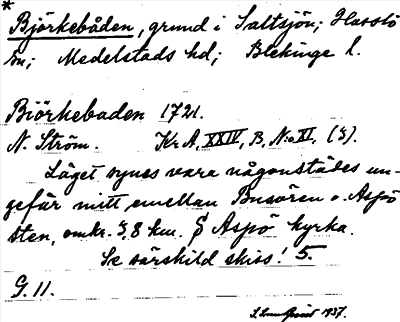 *
Björkebåden, grund i Saltsjön; Hasslö
sn; Medelstads hd; Blekinge l.
Biörkebaden 1721.
N. Ström. Kr A, XXIV, B, N:o XI, (3).
Läget synes vara någonstädes un-
gefär mitt emellan Busören o. Aspö
sten, omkr. 3,8 km. S Aspö kyrka.
Se särskild skiss! 5.
G. 11.
1937.